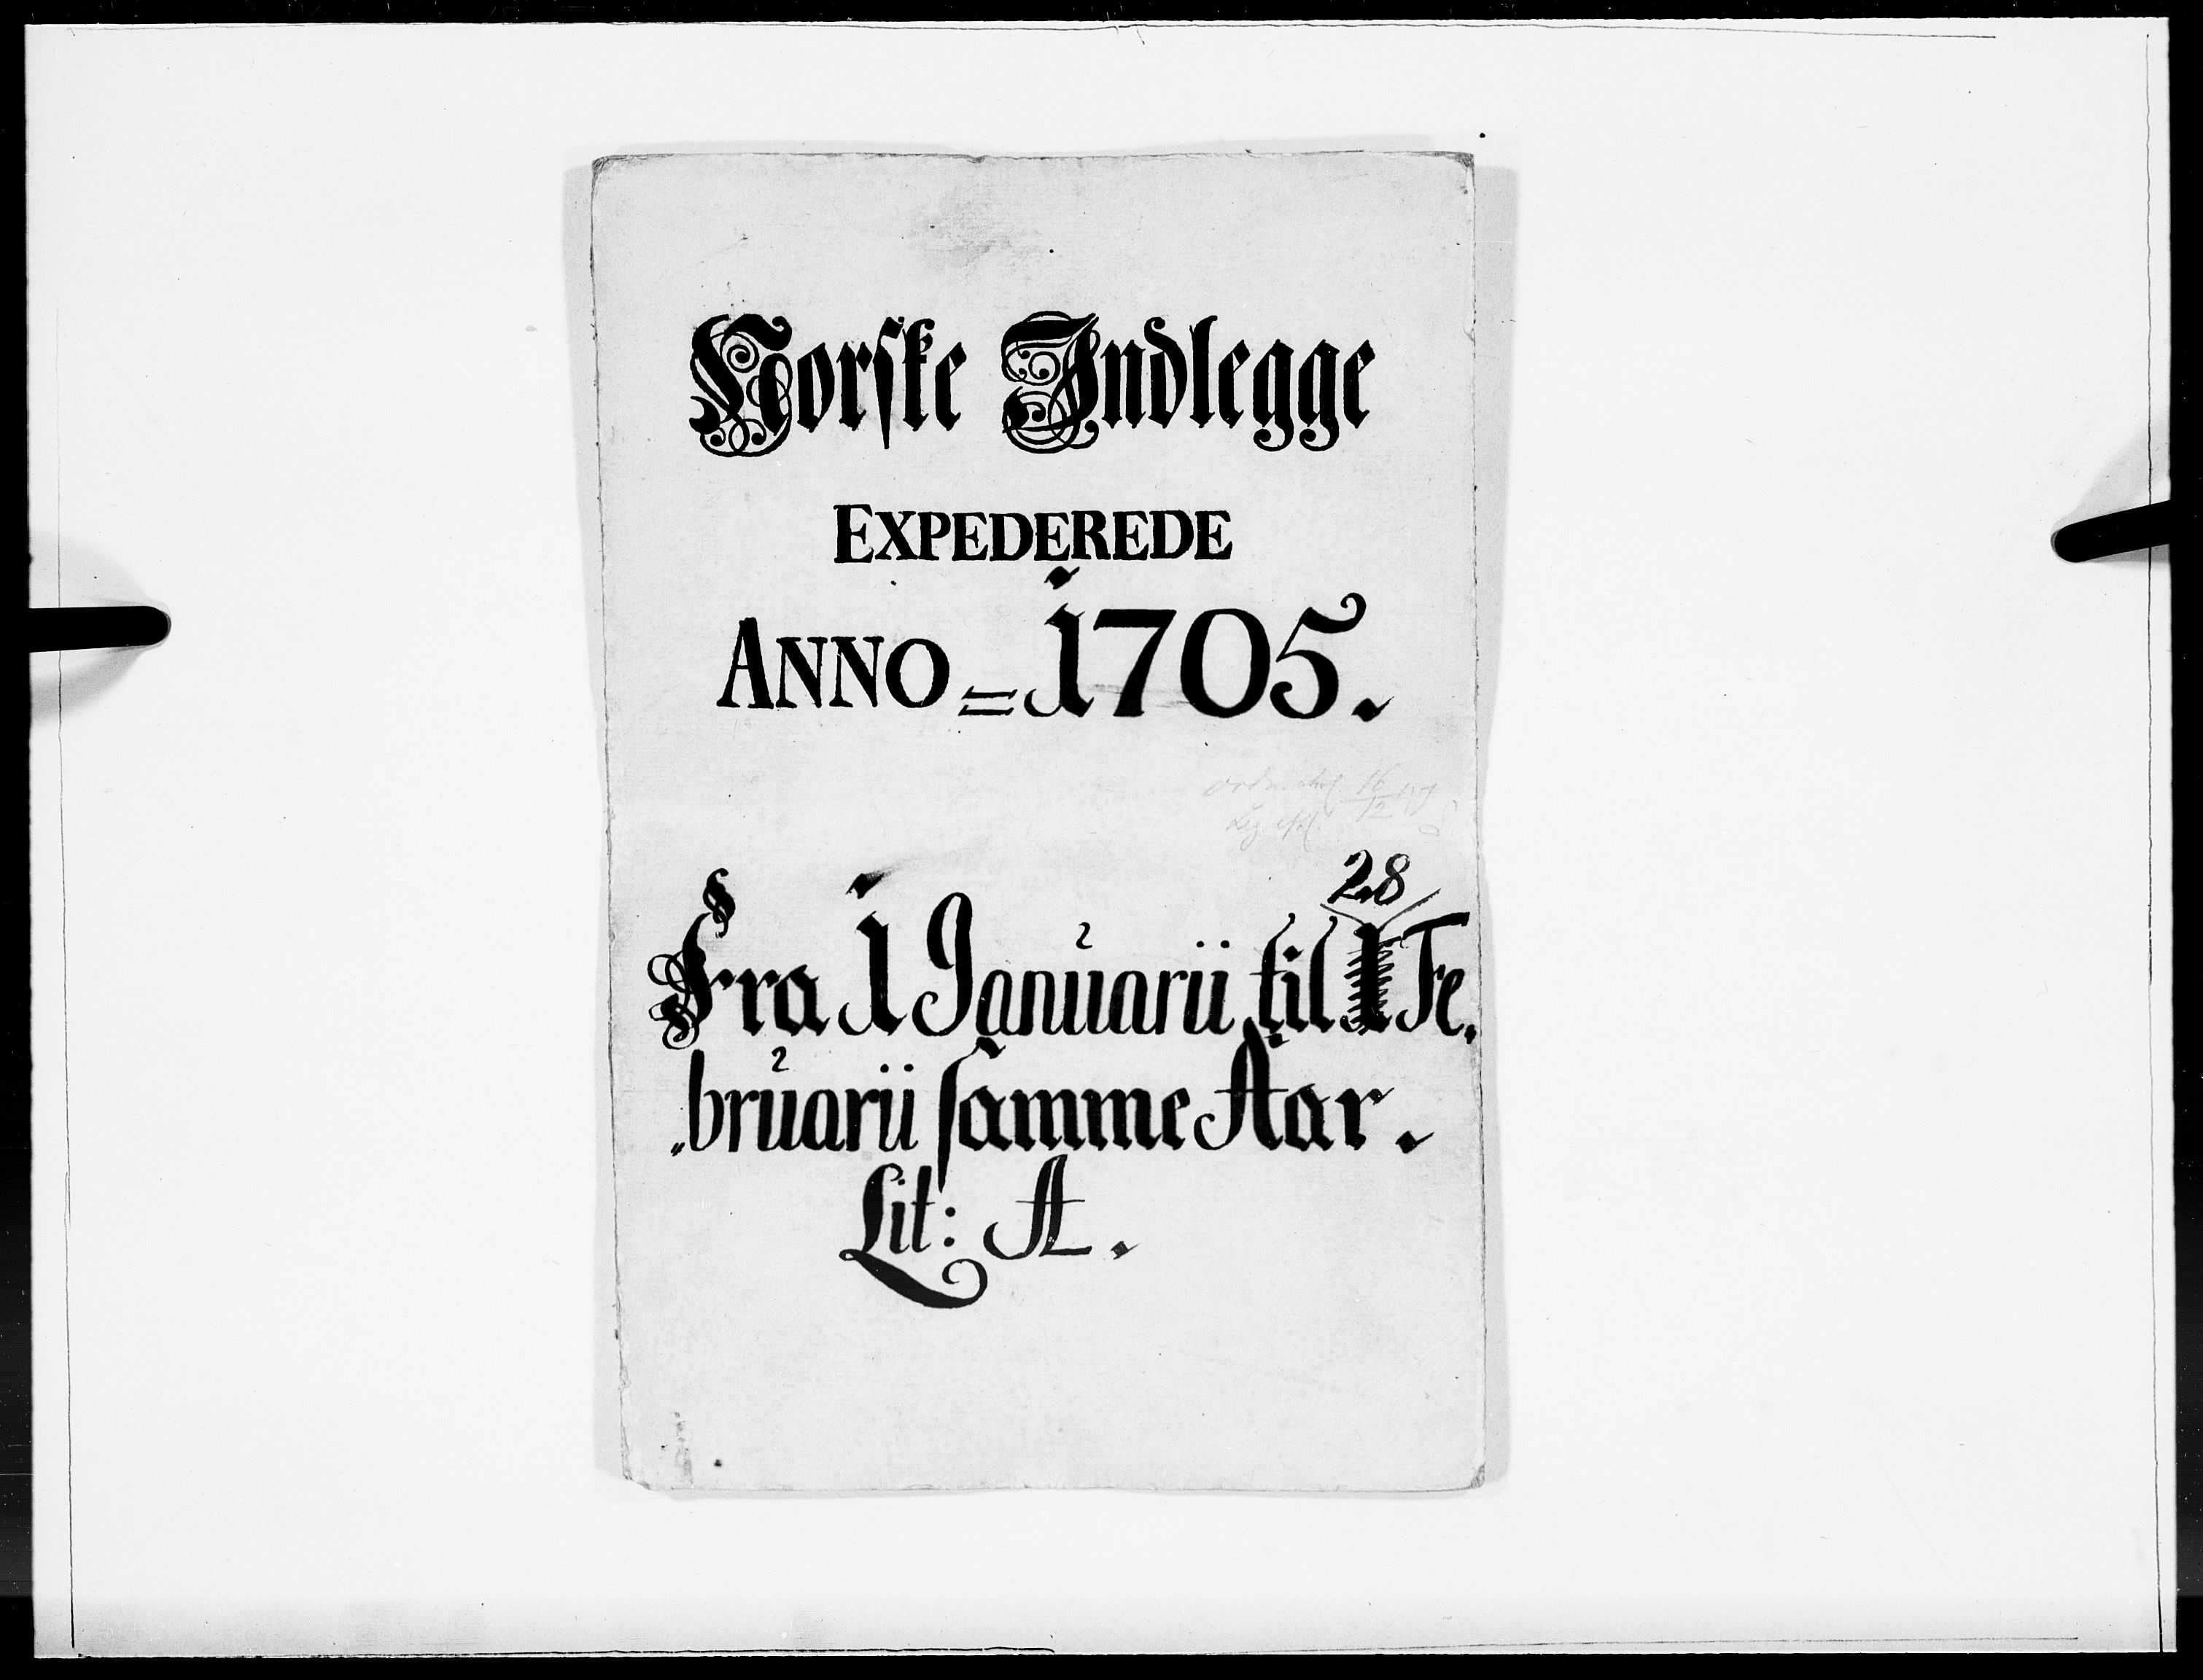 Norske Indlegge
EXPEDEREDE
ANNO = 1705.
28
Fra 1 Januarii til 1 Fe,
„bruarii samme Aar.
Lit: A.